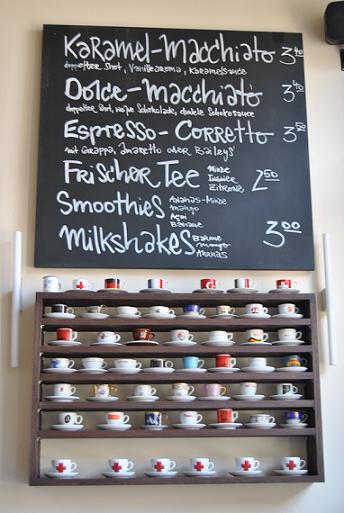 Karamel-Macchiato 3 40
doppelter Shot, Vanillearoma, Karamelsauce
Dolce-Macchiato 3 40
doppelter Shot, weiße Schokolade, dunkle Schokosauce
Espresso-Corretto 3 50
mit Grappa, Amaretto oder Baileys
Frischer Tee Minze Ingwer Zitrone 2 50
Smoothies Ananas-Minze
Mango
Açai
Banane
Milkshakes Banane Mango Ananas 3 00